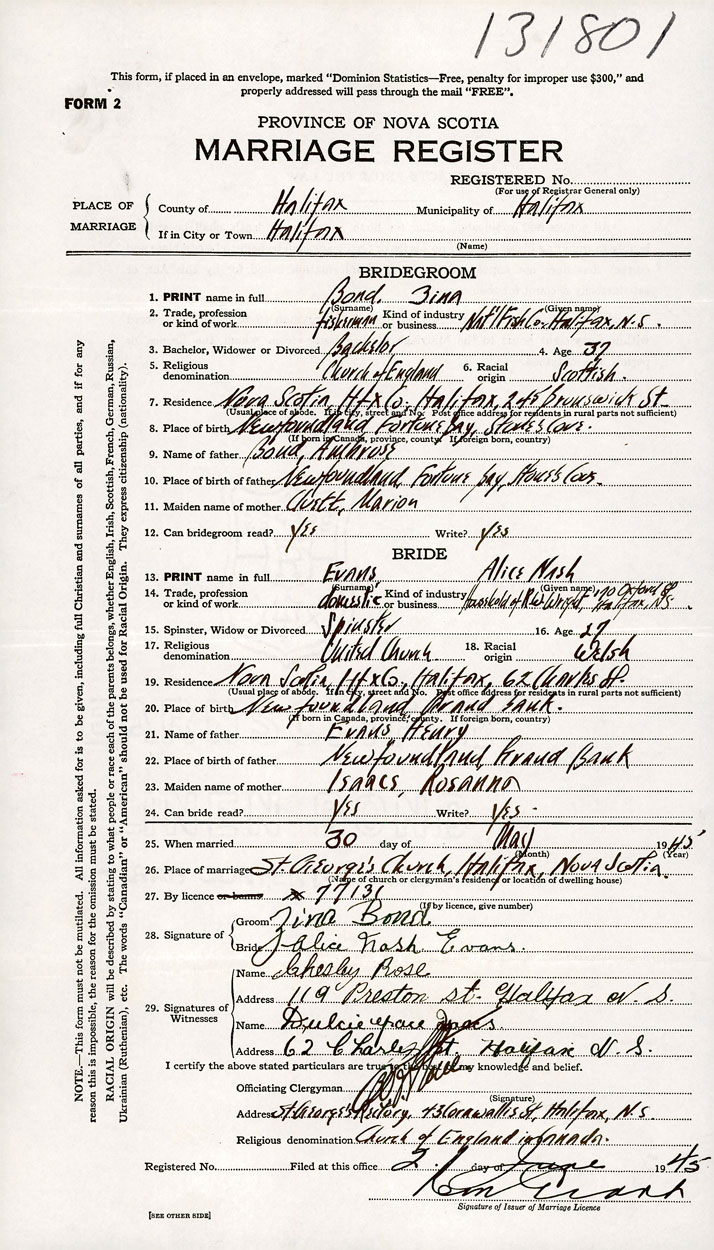 131801
This form, if placed in an envelope, marked “Dominion Statistics—Free, penalty for improper use $300,” and
properly addressed will pass through the mail “FREE”.
FORM 2
PROVINCE OF NOVA SCOTIA
MARRIAGE REGISTER
REGISTERED No.
(For use of Registrar General only)
PLACE OF MARRIAGE
County of Halifax Municipality of Halifax
If in City or Town Halifax
(Name)
BRIDEGROOM
1. PRINT name in full Bond, Zina
(Given name)
2. Trade, profession or kind of work fisherman Kind of industry or business Nat'l Fish Co. Halifax, N.S.
3. Bachelor, Widower or Divorced Bachelor 4. Age 37
5. Religious denomination Church of England 6. Racial origin Scottish.
7. Residence Nova Scotia, Hfx Co. Halifax, 245 Brunswick St.
(Usual place of abode. If in city, street and No. Post office address for residents in rural parts not sufficient)
8. Place of birth Newfoundland Fortune Bay,
(If born in Canada, province, county If foreign born, country)
9. Name of father Bond, Ambrose
10. Place of birth of father Newfoundland, Fortune Bay,
11. Maiden name of mother Marion
12. Can bridegroom read? Yes Write? Yes
BRIDE
13. PRINT name in full Evans, Alice Nash
(Surname) (Given name)
14. Trade, profession or kind of work domestic Kind of industry or business household of Wright, 170 Oxford St. Halifax, N.S.
15. Spinster, Widow or Divorced Spinster 16. Age 27
17. Religious denomination United Church 18. Racial origin Welsh
19. Residence Nova Scotia, Hfx Co., Halifax, 62 Charles St.
(Usual place of abode. If in city, street and No. Post office address for residents in rural parts not sufficient)
20. Place of birth Newfoundland Grand Bank.
(If born in Canada, province, county. If foreign born, country)
21. Name of father Evans, Henry
22. Place of birth of father Newfoundland Grand Bank
23. Maiden name of mother Isaacs, Rosanna
24. Can bride read? Yes Write? Yes.
25. When married 30 day of May 1945
(Month) (Year)
26. Place of marriage St. George's Church, Halifax, Nova Scotia.
(Name of church or clergyman's residence or location of dwelling house)
27. By licence or banns 77131
(If by licence, give number)
28. Signature of
Groom Zina Bond
Bride Alice Nash Evans.
29. Signatures of Witnesses
Name Chesley Rose
Address 119 Preston St. Halifax N.S.
Name Dulcie
Address 62 Charles St. Halifax N.S.
I certify the above stated particulars are true to the best of my knowledge and belief.
Officiating Clergyman
(Signature)
Address St. George's Rectory, 43 Cornwallis St, Halifax, N.S.
Religious denomination Church of England in Canada.
Registered No. Filed at this office 2 day of June 1945
Signature of Issuer of Marriage Licence
[SEE OTHER SIDE]
NOTE.—This form must not be mutilated. All information asked for is to be given, including full Christian and surnames of all parties, and if for any
reason this is impossible, the reason for the omission must be stated.
RACIAL ORIGIN will be described by stating to what people or race each of the parents belongs, whether English, Irish, Scottish, French, German, Russian,
Ukrainian (Ruthenian), etc. The words “Canadian” or “American” should not be used for Racial Origin. They express citizenship (nationality).